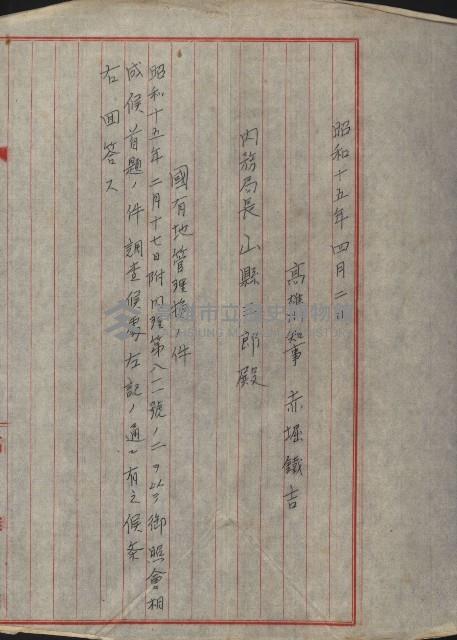 昭和十五年四月二日
高雄州知事 赤堀鐵吉
內務局長 山縣三郎殿
國有地管理換ノ件
昭和十五年二月十七日附內理第八一一號ノ二ヲ以テ御照會相
成候首題ノ件調查候處左記ノ通リ有之候条
右回答ス
高雄市立歷史博物館
KAOHSIUNG MUSEUM OF HISTORY